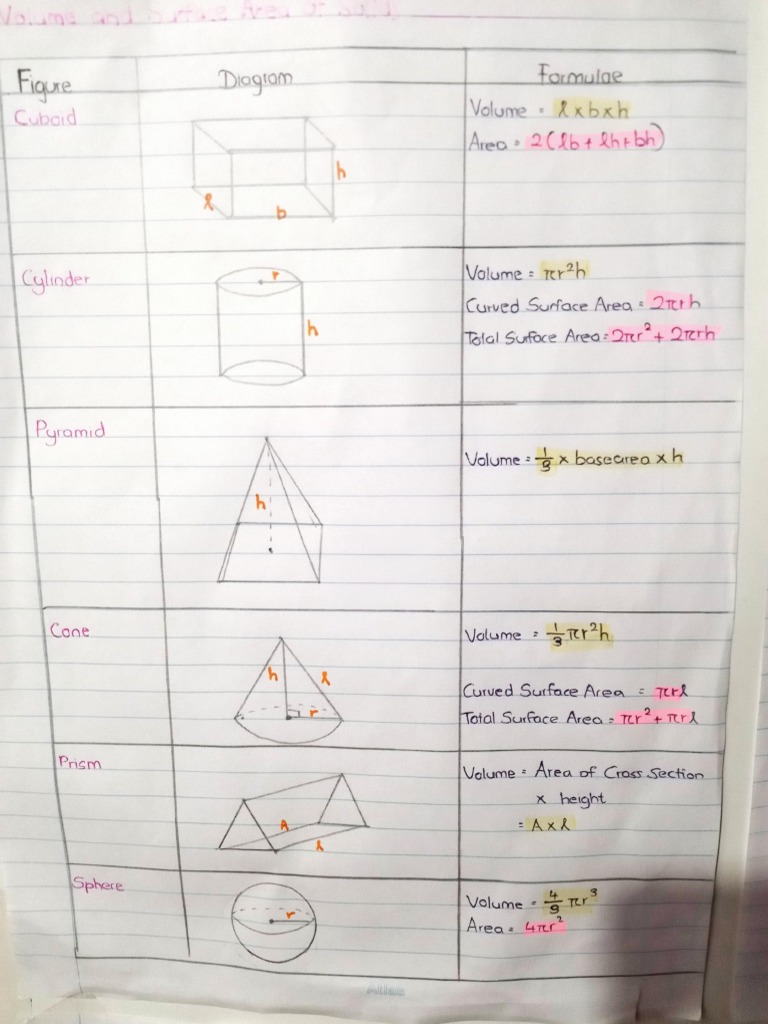 Volume and Surface Area of Solids
Figure Diagram Formulae
Cuboid
Volume = l x b x h
Area = 2(lb + lh + bh)
h
l
b
Cylinder
r
h
Volume = πr²h
Curved Surface Area = 2πrh
Total Surface Area = 2πr² + 2πrh
Pyramid
h
Volume = 1/3 x basearea x h
Cone
h l
r
Volume = 1/3 πr²h
Curved Surface Area = πrl
Total Surface Area = πr² + πrl
Prism
A
l
Volume = Area of Cross Section
x height
= A x l
Sphere
r
Volume = 4/3 πr³
Area = 4πr²
Atlas